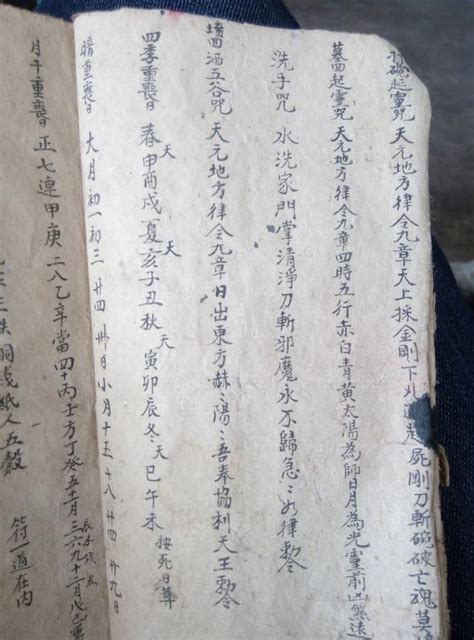 起靈咒 天元地方律令九章天上採金剛下 屍剛刀斬 破亡魂莫
墓囬起靈咒 天元地方律令九章四時五行赤白青黃太陽為師日月為光靈前凶煞遠
洗手咒 水洗家門掌清淨刀斬邪魔永不歸急〻如律勅
囬洒五谷咒 天元地方律令九章日出東方赫〻陽〻吾奉協利天王勅令
四季重喪日 春天甲酉戌夏天亥子丑秋天寅卯辰冬天巳午未 按死日葬
暗重喪日 大月初一初三 廿四 卅日小月十五十八廿四 廿九日
月干重喪日 正七連甲庚 二八乙辛當四十丙壬方丁癸五十一月三六九十二月戊己重
銅戋紙人五穀 符一道在内